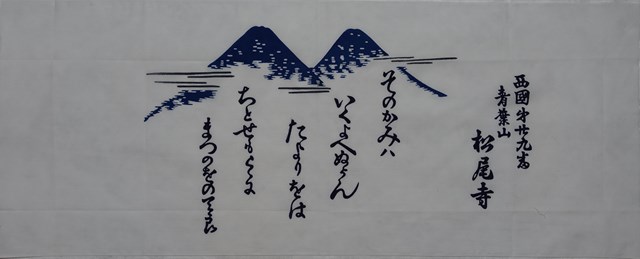 西國第廿九番
青葉山
松尾寺
そのかみハ
いくよへぬらん
たよりをは
ちとせもこゝに
まつのをのてら